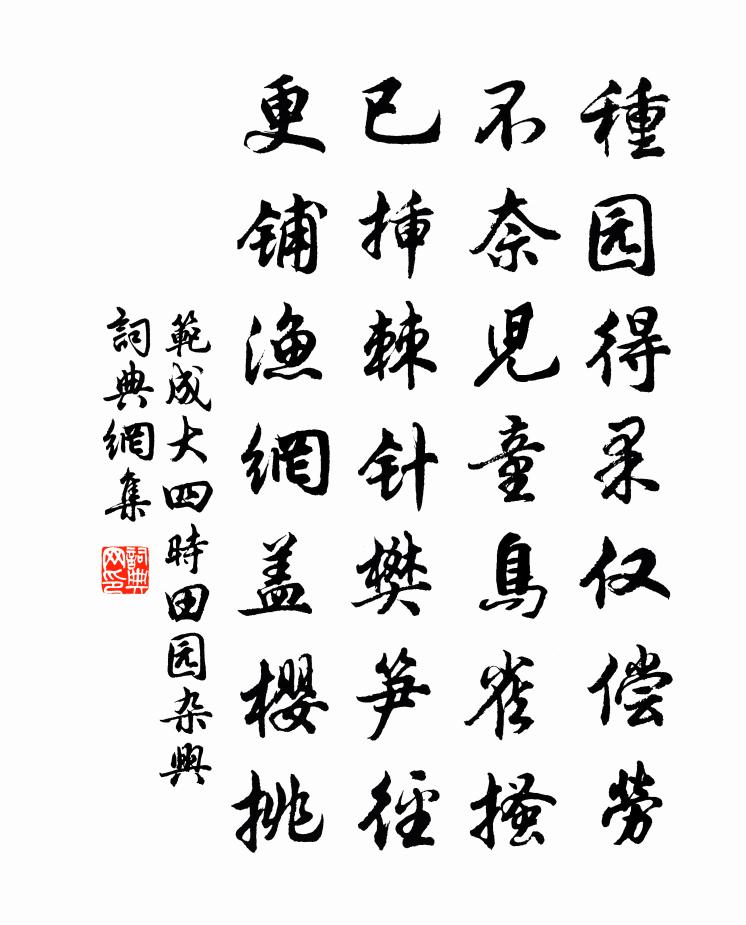 種园得果仅偿劳
不奈兒童鳥雀搔
已插棘针樊笋徑
更铺漁網盖櫻桃
範成大四時田园杂興
詞典網集
詞典网印